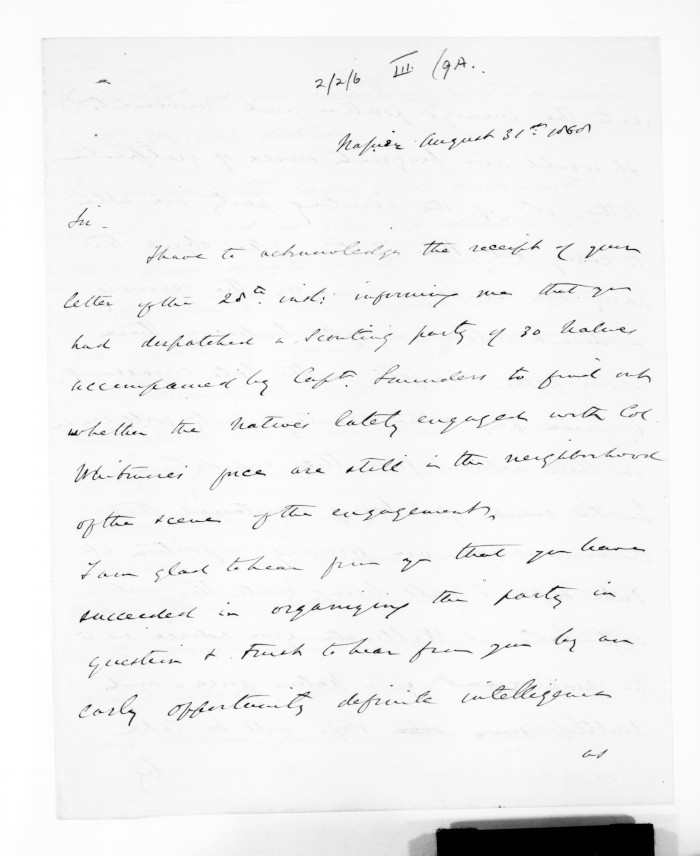 2/2/6 III (9A.
Napier August 31st 1868
Sir -
I have to acknowledge the receipt of your
letter of the 28th inst; informing me that you
had despatched a Scouting party of 30 Natives
accompanied by Capt. Saunders to find out
whether the Natives lately engaged with Col.
Whitmore's force are still in the neighborhood
of the scene of the engagement,
I am glad to hear from you that you have
succeeded in organizing the party in
question & trust to hear from you by an
early opportunity definite intelligence
as